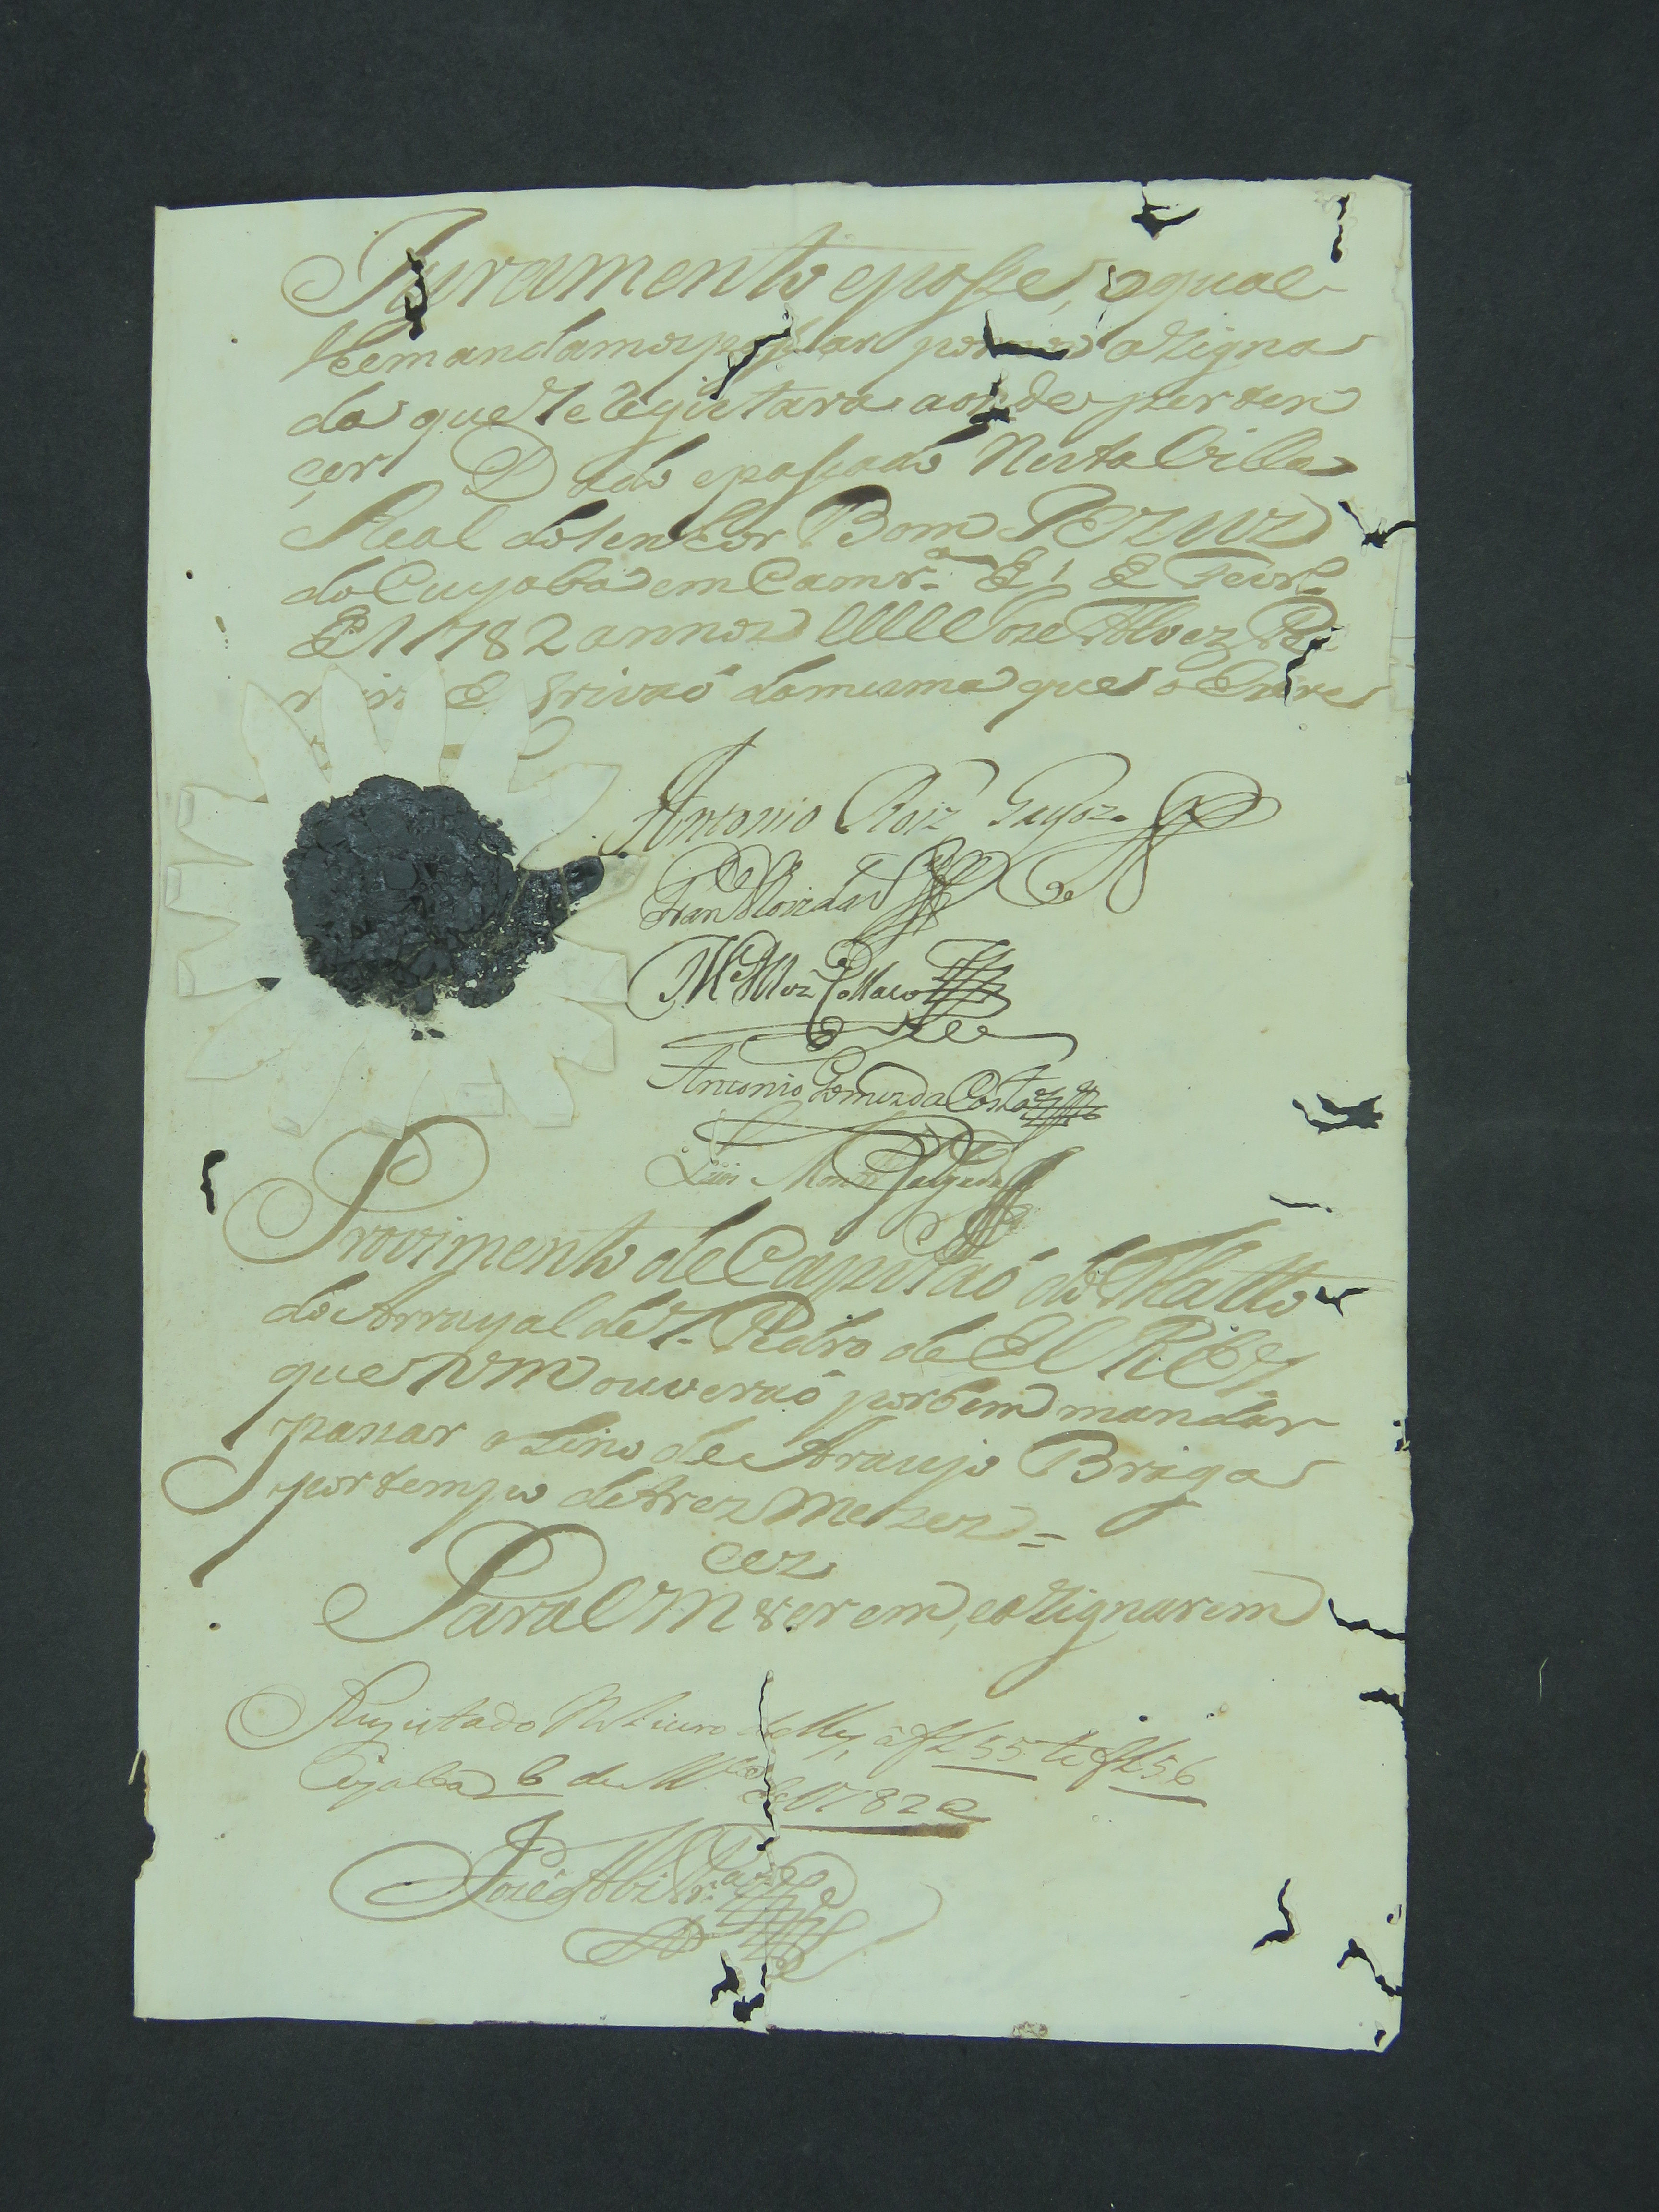 Juramento eposse, oqual
lhemandamos passar por nós aSigna
da que Se Regiſtara aonde perten
çer Dado epaſsado Neſta Villa
Real doSenhor Bom JEZUZ
do Cuyaba em Camr.ª
de 1782 annos Joze Alvez
Eſcrivaõ damesma que o Escrevi
Antonio Roiz
Fran
M.el Alvz Collaco
Antonio Gomes da Costa
Luis Monteiro Salgado
Provimento de Capitaõ do Matto
do Arrayal de S. Pedro de El REY
que VM ouveraõ porbem mandar
passar a Lino de Araujo Braga
por tempo de trez Mezez =
cez
Para V M verem, eaSignarem
Regiſtado No Livro de Reg. á fl 55 te fl 56
Cuyabá 6 de M.ço de 1782
Jozé Alz Pr.ª